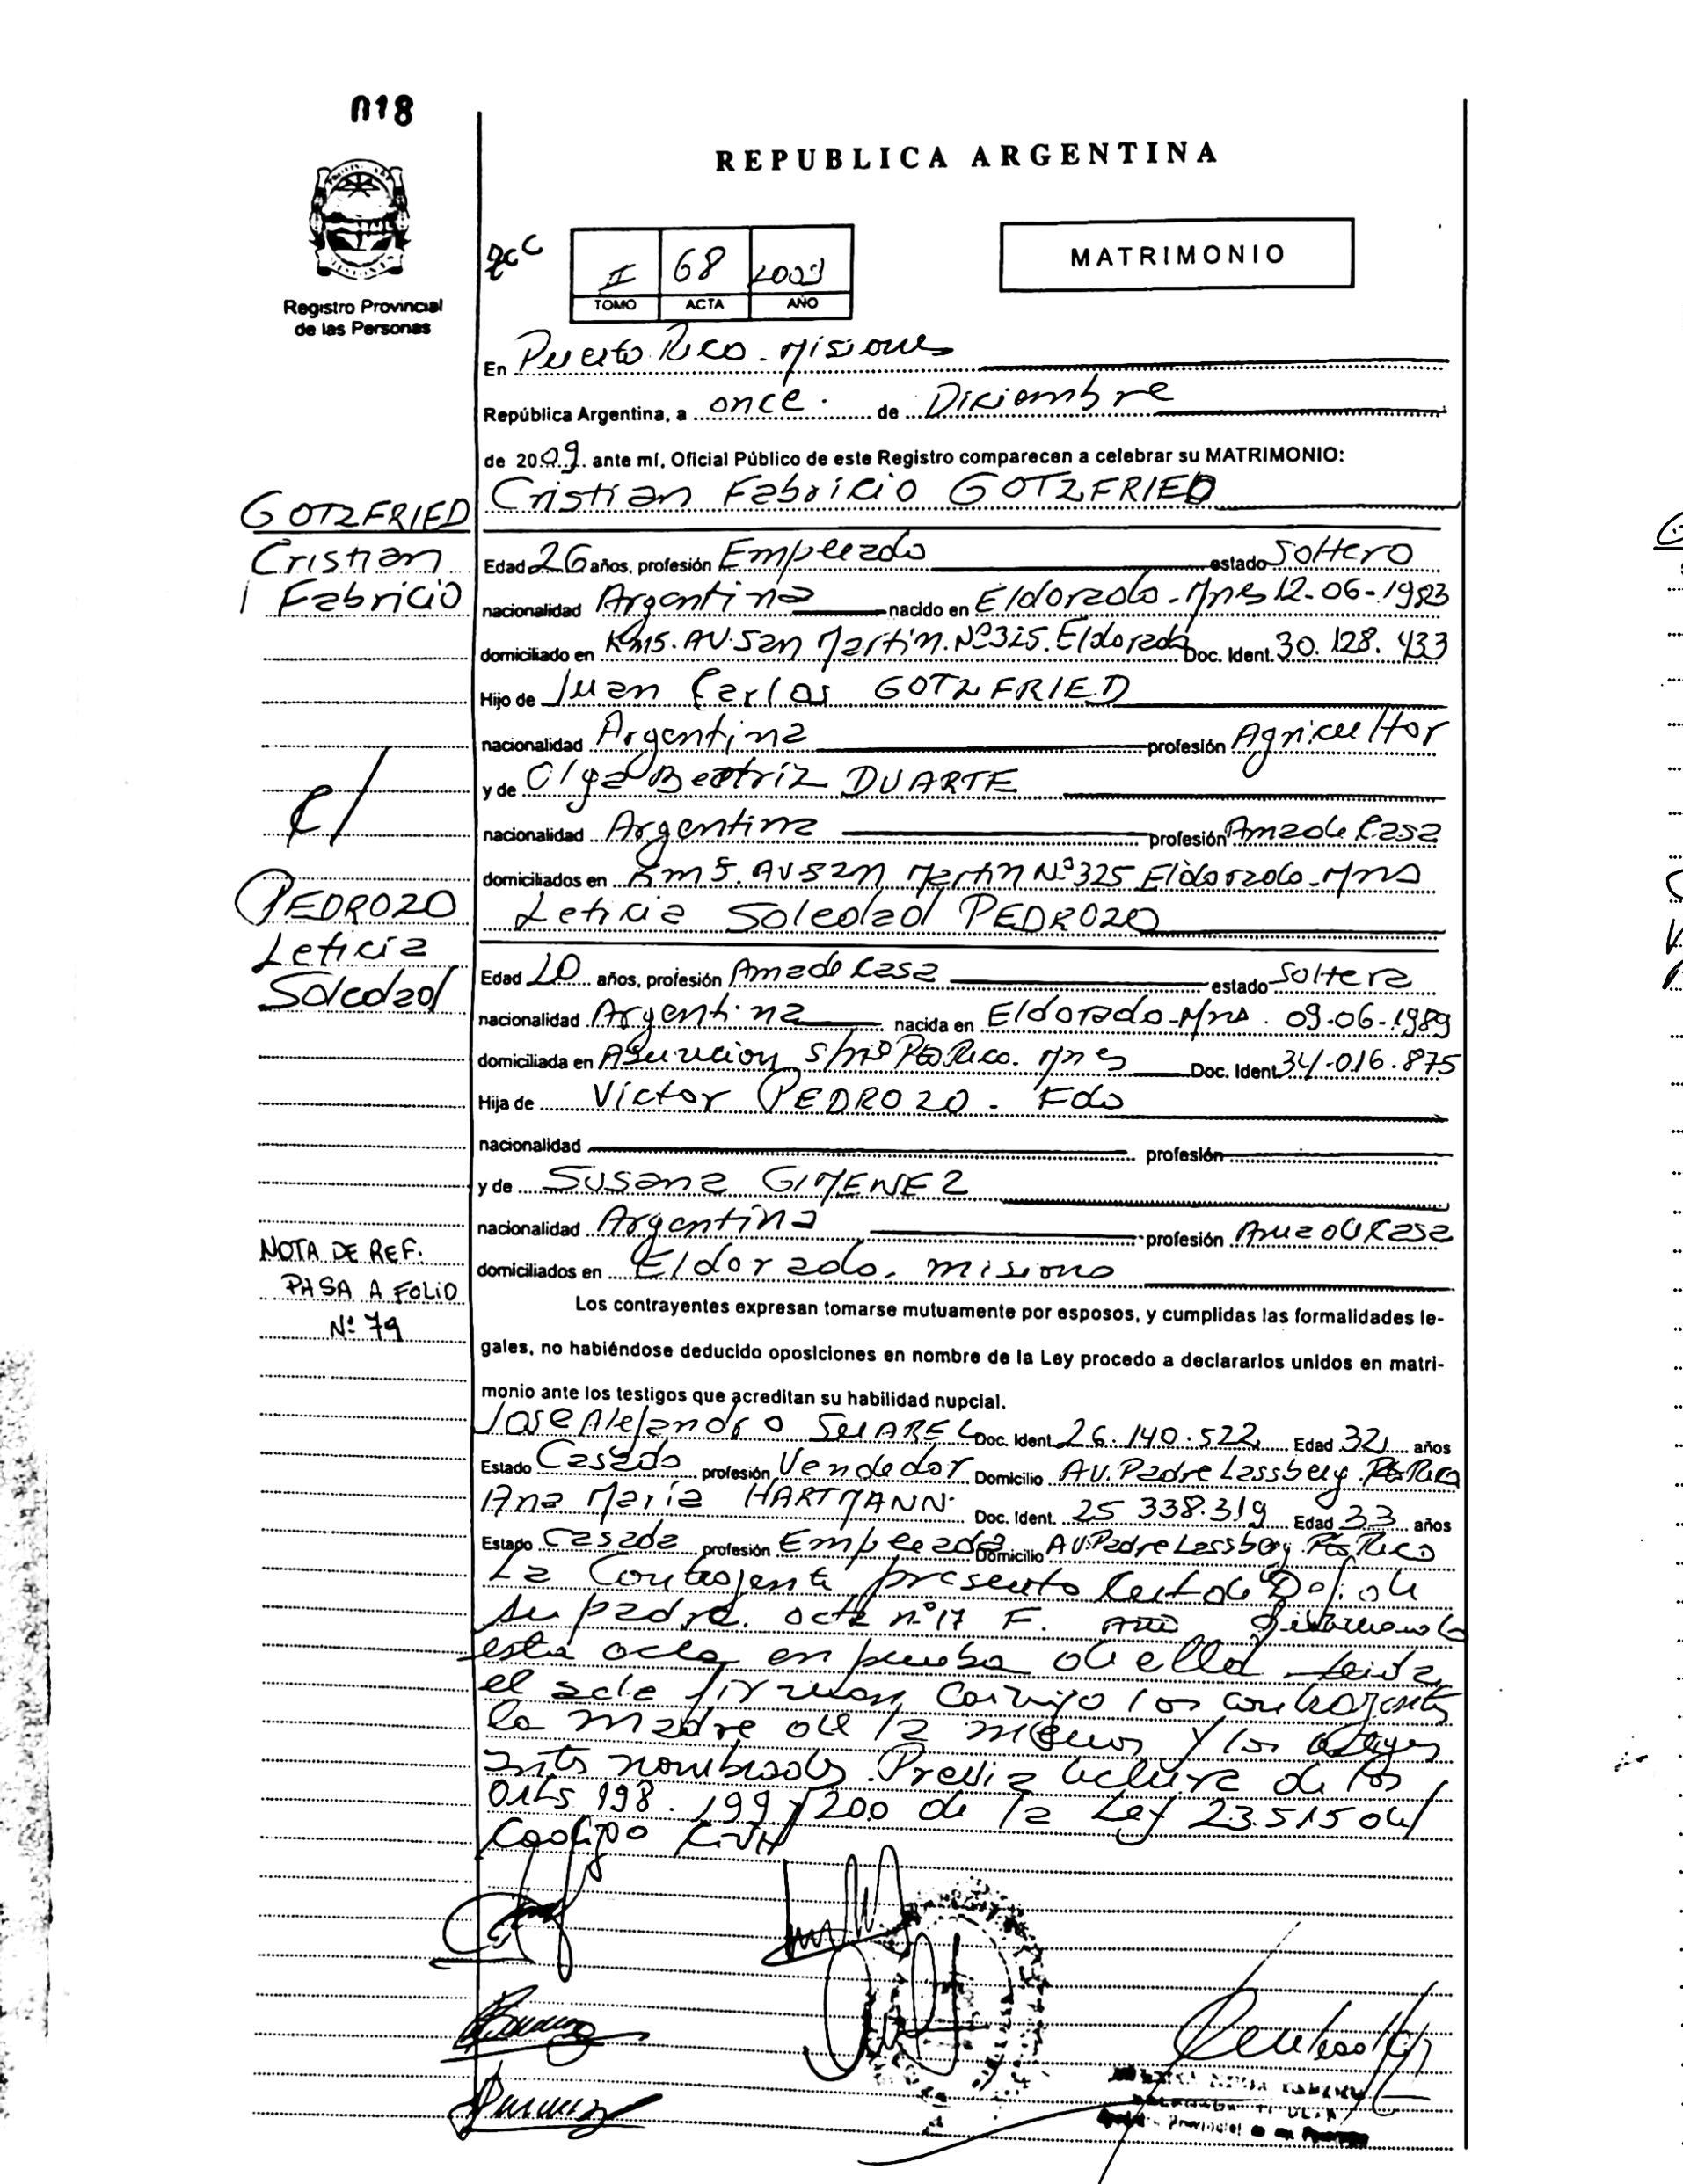 018
REPUBLICA ARGENTINA
Registro Provincial
de las Personas
II 68 2009
TOMO ACTA AÑO
MATRIMONIO
En Puerto Rico - Misiones
República Argentina, a once de Diciembre
de 2009 ante mí, Oficial Público de este Registro comparecen a celebrar su MATRIMONIO:
Cristian Fabricio GOTZFRIED
GOTZFRIED
Cristian
Fabricio
Edad 26 años, profesión Empleado estado Soltero
nacionalidad Argentina nacido en Eldorado - Mnes 12-06-1983
domiciliado en Km5. AV. San Martín. Nº 325. Eldorado Doc. Ident. 30.128.433
Hijo de Juan Carlos GOTZFRIED
nacionalidad Argentina profesión Agricultor
y de Olga Beatriz DUARTE
c/
nacionalidad Argentina profesión Ama de Casa
domiciliados en Km 5. AV San Martin Nº 325 Eldorado - Mns
PEDROZO
Leticia
Soledad
Leticia Soledad PEDROZO
Edad 20 años, profesión Ama de Casa estado Soltera
nacionalidad Argentina nacida en Eldorado - Mns. 09-06-1989
domiciliada en Asuncion s/nº Pto Rico. Mnes Doc. Ident. 34.016.875
Hija de Víctor PEDROZO - Fdo
nacionalidad profesión
y de Susana GIMENEZ
nacionalidad Argentina profesión Ama de Casa
domiciliados en Eldorado. Misiones
NOTA DE REF.
PASA A FOLIO
Nº 79
Los contrayentes expresan tomarse mutuamente por esposos, y cumplidas las formalidades le-
gales, no habiéndose deducido oposiciones en nombre de la Ley procedo a declararlos unidos en matri-
monio ante los testigos que acreditan su habilidad nupcial.
Jose Alejandro SUAREZ Doc. Ident. 26.140.522 Edad 32 años
Estado Casado profesión Vendedor Domicilio AV. Padre Lassberg. Pto Rico
Ana María HARTMANN Doc. Ident. 25 338.319 Edad 33 años
Estado Casada profesión Empleada Domicilio AV. Padre Lassberg Pto Rico
La Contrayente presento Cert de Def. de
su padre. acta nº 17 F.
esta acta en prueba de ella leida
el acta firman conmigo los contrayentes
la madre de la menor y los testigos
antes nombrados. Previa lectura de los
Arts 198. 199 y 200 de la Ley 23.515 del
Codigo Civil